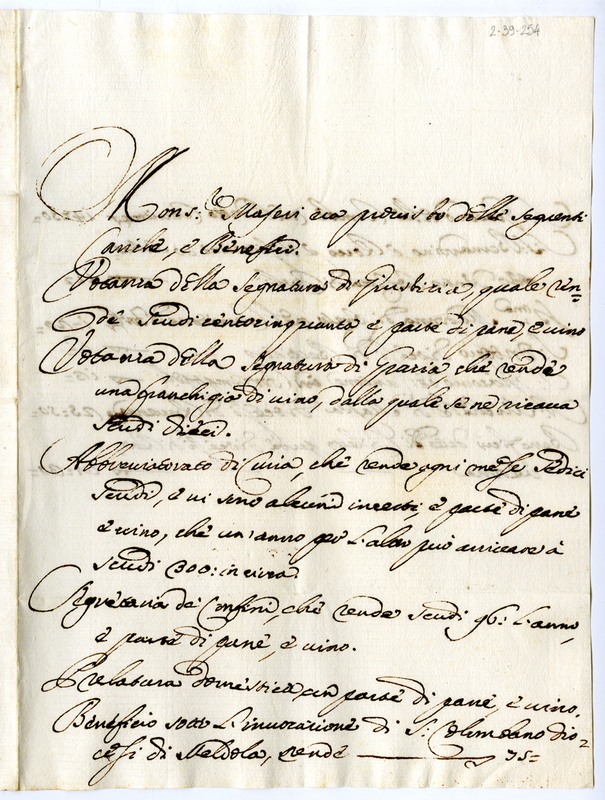 2-39-254
Mons:re Maseri era provisto delle seguenti
Cariche, e Benefici.
Votanza della Segnatura di Giustitia, quale ren=
de scudi centocinquanta e parte di pane, e vino
Votanza della Segnatura di Gratia che rende
una franchigia di vino, dalla quale se ne ricava
scudi dieci.
Abbreviatorato di Curia, che rende ogni mese sedici
scudi, e vi sono alcuni incerti e parte di pane
e vino, che un'anno per l'altro può arrivare à
scudi 300: in circa
Segretaria de Confini, che rende scudi 96: l'anno,
e parte di pane, e vino.
Prelatura domestica con parte di pane, e vino,
Beneficio sotto l'invocazione di S: Colombano dio=
cesi di Meldola, rende 75=